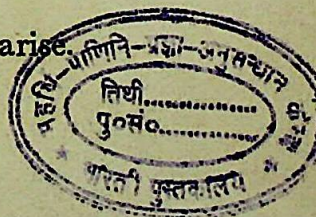 arise.
महर्षि-पाणिनि-प्रज्ञा-अनुसन्धान केन्द्र
तिथी..................
पु०सं०..................
* भारती पुस्तकालय *